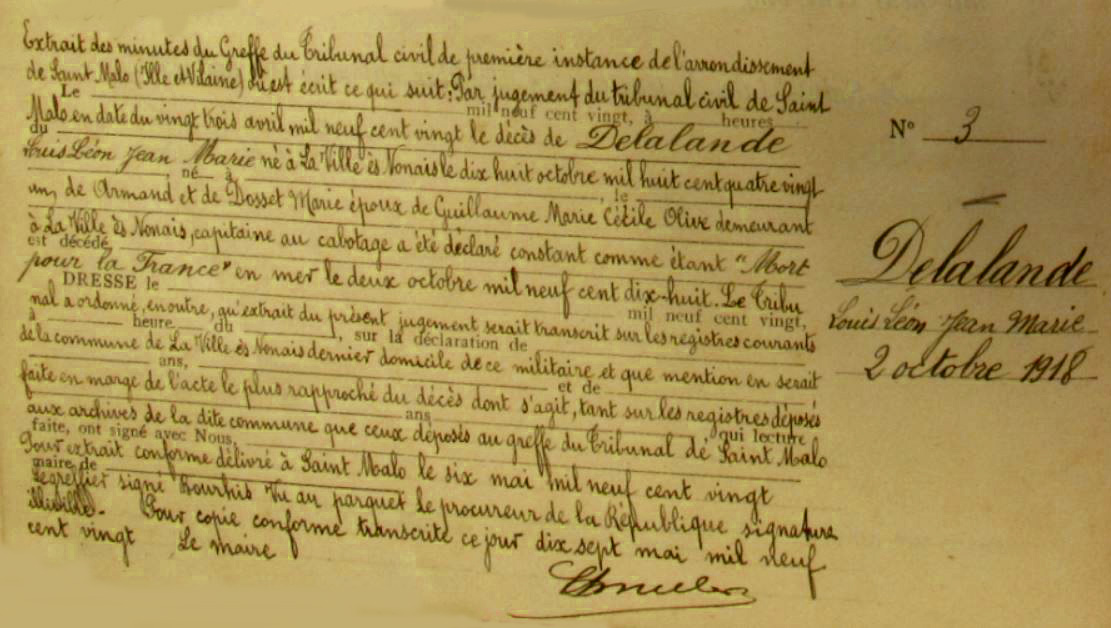 Extrait des minutes du Greffe du Tribunal civil de première instance de l'arrondissement
de Saint Malo (Ille et Vilaine) où est écrit ce qui suit: Par jugement du tribunal civil de Saint
Le mil neuf cent vingt, à heures
Malo en date du vingt trois avril mil neuf cent vingt le décès de Delalande
du
Louis Léon Jean Marie né à La Ville ès Nonais le dix huit octobre mil huit cent quatre vingt
né à , le
un, de Armand et de Dosset Marie époux de Guillaume Marie Cécile Olive demeurant
à La Ville ès Nonais, capitaine au cabotage a été déclaré constant comme étant "Mort
est décédé,
pour la France" en mer le deux octobre mil neuf cent dix-huit. Le Tribu
DRESSE le mil neuf cent vingt,
nal a ordonné, en outre, qu'extrait du présent jugement serait transcrit sur les registres courants
à heure du , sur la déclaration de
de la commune de La Ville ès Nonais dernier domicile de ce militaire et que mention en serait
ans,
faite en marge de l'acte le plus rapproché du décès dont s'agit, tant sur les registres déposés
et de
aux archives de la dite commune que ceux déposés au greffe du Tribunal de Saint Malo
ans qui lecture
faite, ont signé avec Nous,
Pour extrait conforme délivré à Saint Malo le six mai mil neuf cent vingt
maire de
Le greffier signé Bourhis Vu au parquet le procureur de la République signature
illisible. Pour copie conforme transcrite ce jour dix sept mai mil neuf
cent vingt Le maire
N° 3
Delalande
Louis Léon Jean Marie
2 octobre 1918